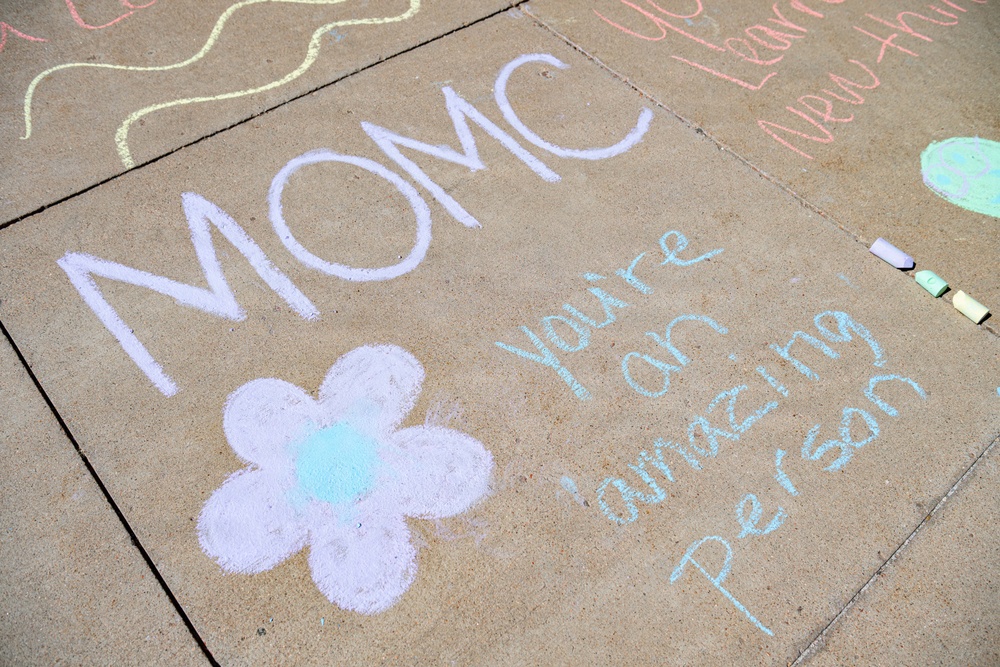 MOMC
you're
an
amazing
person
Learn
New thin